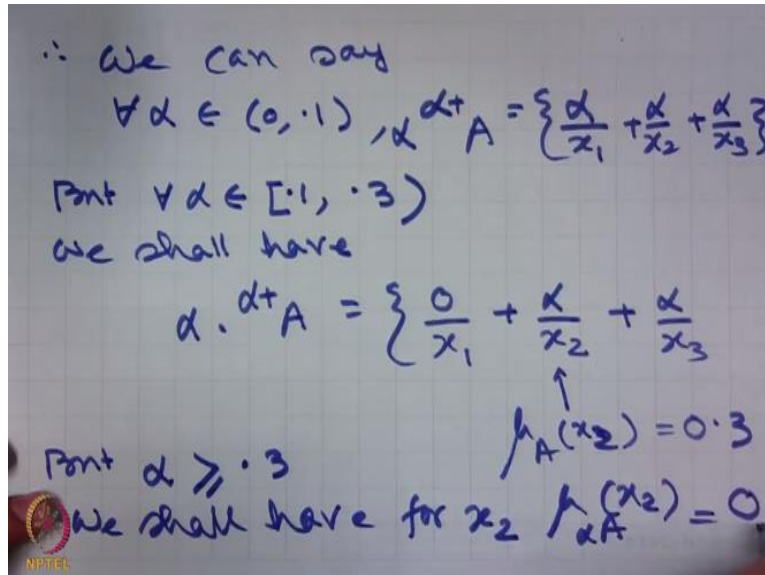 ∴ We can say
∀ α ∈ (0, ·1), α ᵅ⁺A = {α/x₁ + α/x₂ + α/x₃}
But ∀ α ∈ [·1, ·3)
we shall have
α · ᵅ⁺A = {0/x₁ + α/x₂ + α/x₃
↑
μ_A(x₂) = 0·3
But α ⩾ ·3
We shall have for x₂ μ_αA(x₂) = 0
NPTEL